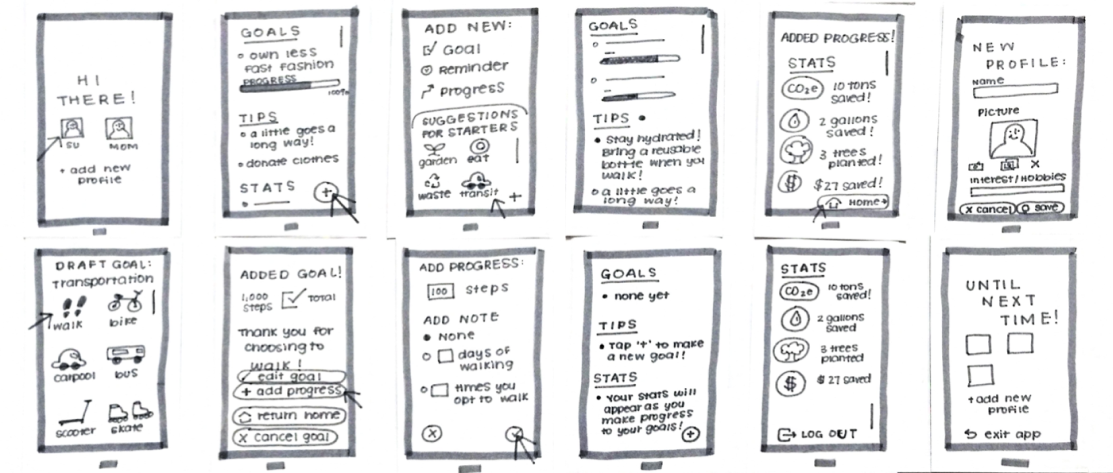 HI
THERE!
SU
MOM
+ add new
profile
GOALS
own less
fast fashion
PROGRESS
100%
TIPS
a little goes a
long way!
donate clothes
STATS
+
ADD NEW:
Goal
Reminder
Progress
SUGGESTIONS
FOR STARTERS
garden
eat
waste
transit
+
GOALS
TIPS
Stay hydrated!
Bring a reusable
bottle when you
walk!
a little goes a
long way!
ADDED PROGRESS!
STATS
CO2e 10 tons
saved!
2 gallons
saved!
3 trees
planted!
$ $27 saved!
Home
NEW
PROFILE:
Name
Picture
X
Interest/Hobbies
X cancel
save
DRAFT GOAL:
Transportation
walk
bike
carpool
bus
scooter
skate
ADDED GOAL!
1,000
steps
TOTAL
Thank you for
choosing to
walk!
edit goal
+ add progress
return home
X cancel goal
ADD PROGRESS:
100 steps
ADD NOTE
None
days of
walking
times you
opt to walk
X
GOALS
• none yet
TIPS
• Tap '+' to make
a new goal!
STATS
• Your stats will
appear as you
make progress
to your goals!
+
STATS
CO2e 10 tons
saved!
2 gallons
saved
3 trees
planted
$ $27 saved
LOG OUT
UNTIL
NEXT
TIME!
+add new
profile
exit app